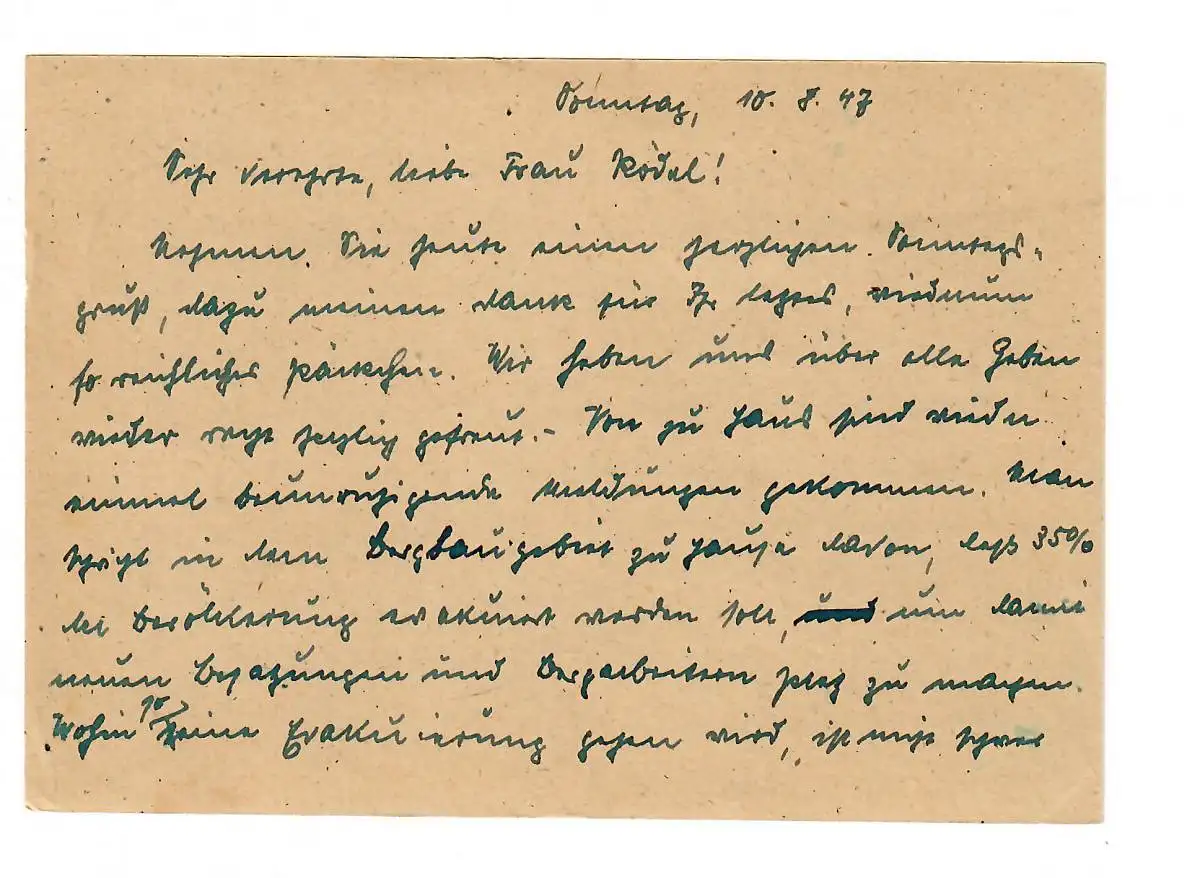 Sonntag, 10. 8. 47
Sehr verehrte, liebe Frau Rödel!
Nehmen Sie heute einen herzlichen Sonntags-
gruß, dazu meinen Dank für Ihr letztes, wiederum
so reichliches Päckchen. Wir haben uns über alle Gaben
wieder recht herzlich gefreut. – Von zu Haus sind wieder
einmal beunruhigende Meldungen gekommen. Man
spricht in dem Bergbaugebiet zu Hause davon, daß 35%
der Bevölkerung evakuiert werden soll, um damit
neuen Besatzungen und Bergarbeitern Platz zu machen.
Wohin so eine Evakuierung gehen wird, ist nicht schwer